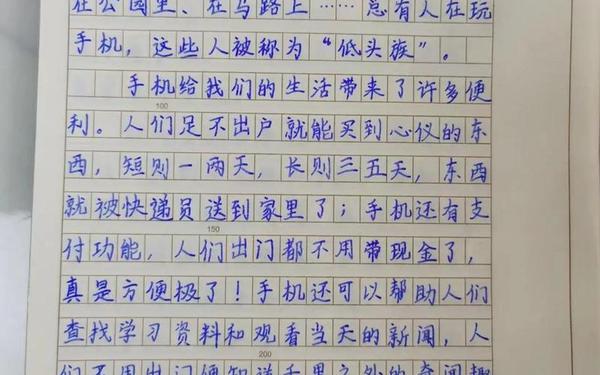 在公园里、在马路上……总有人在玩
手机，这些人被称为“低头族”。
手机给我们的生活带来了许多便
100
利。人们足不出户就能买到心仪的东
西，短则一两天，长则三五天，东西
就被快递员送到家里了；手机还有支
150
付功能，人们出门都不用带现金了，
真是方便极了！手机还可以帮助人们
查找学习资料和观看当天的新闻，人
200
们不用出门便知道千里之外的奇闻趣